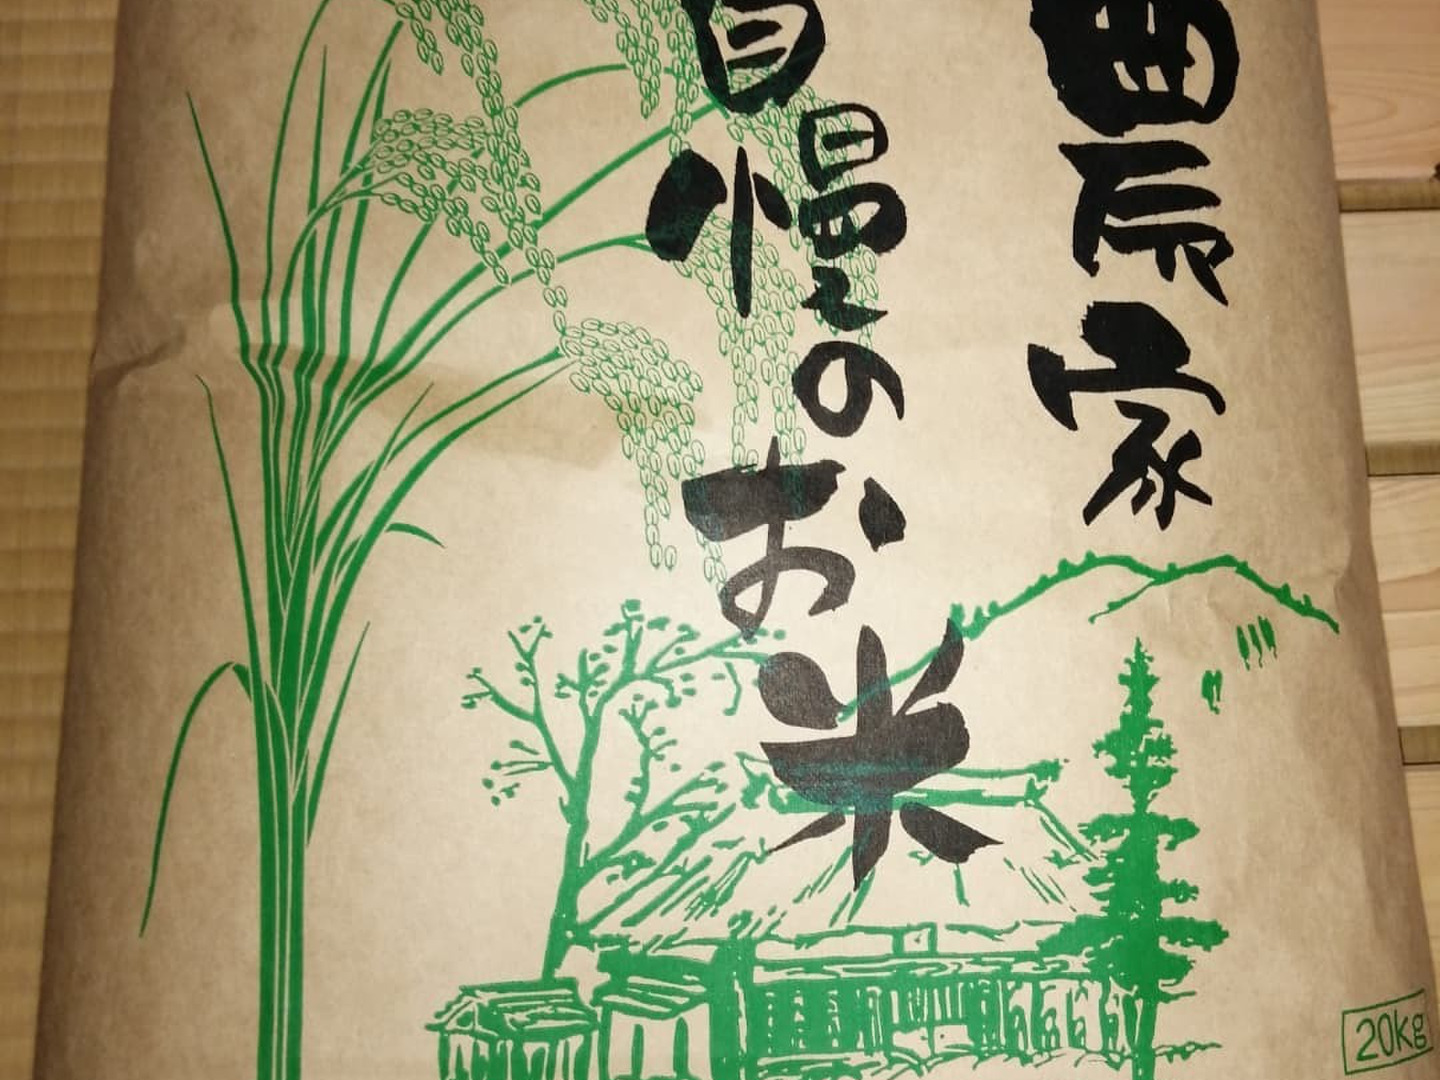 農家
自慢のお米
20kg